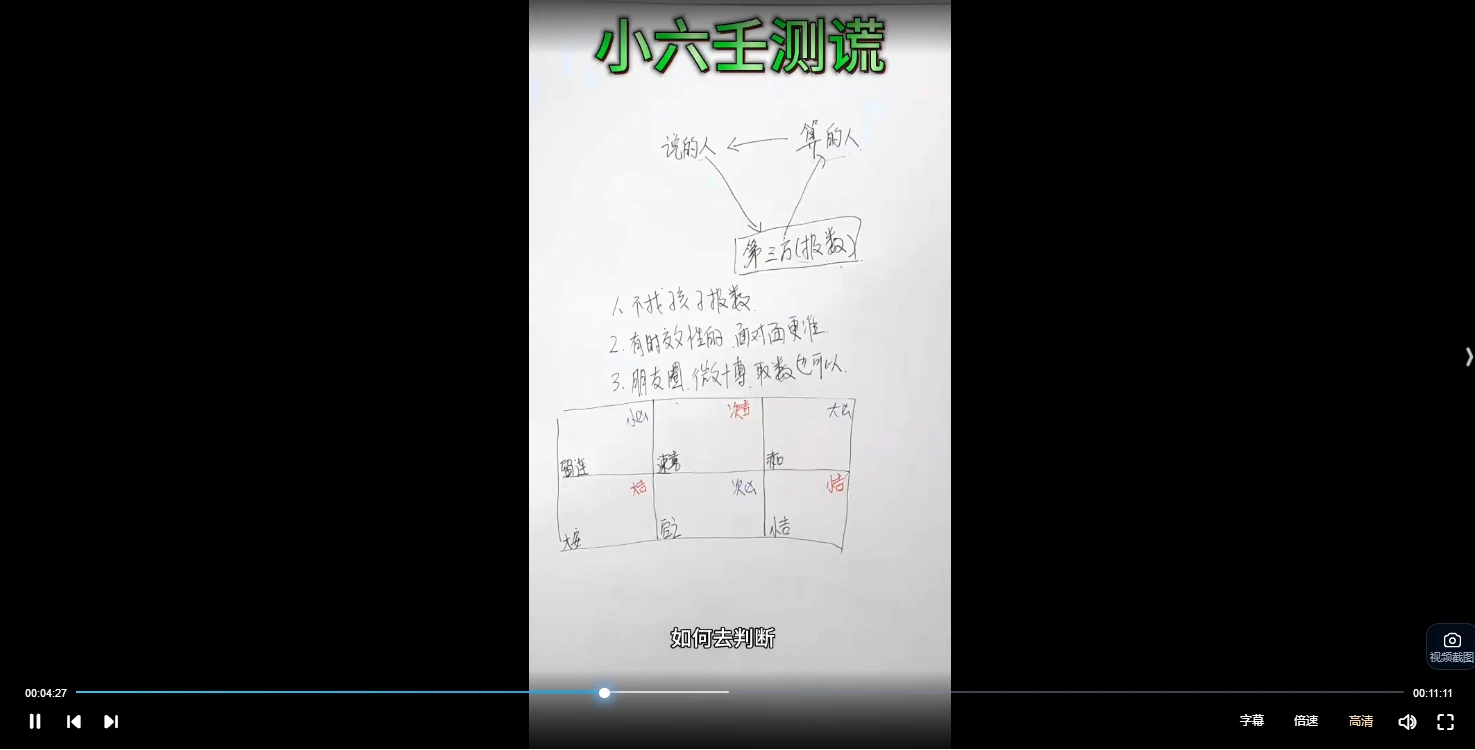 小六壬测谎
说的人 算的人
第三方(报数)
1、不找孩子报数
2.有时效性的、面对面更准
3.朋友圈、微博、取数也可以
小凶 次吉 大凶
留连 速喜 赤口
大吉 次凶 小吉
大安 空亡 小吉
如何去判断
视频截图
00:04:27 00:11:11
字幕 倍速 高清